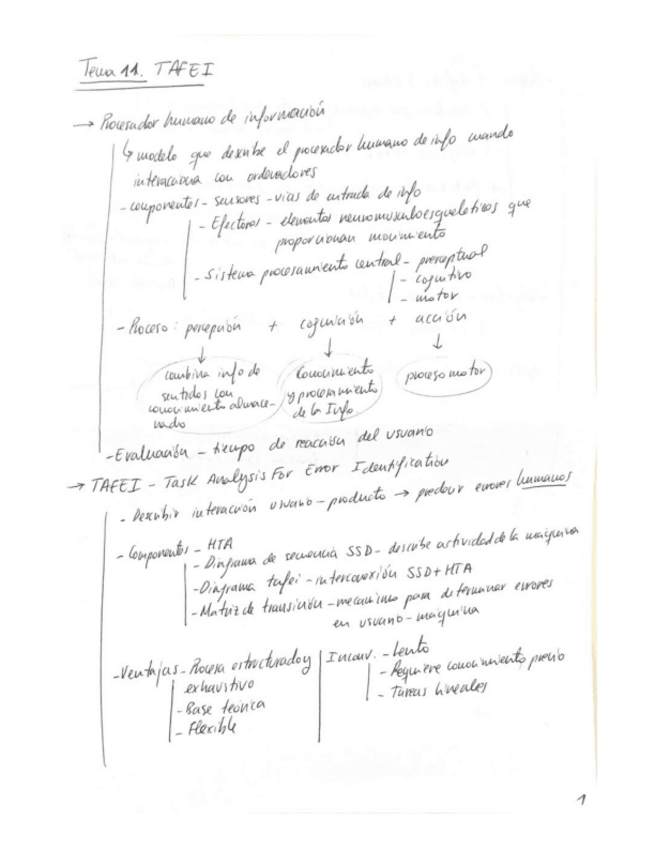 Tema 11. TAFEI
→ Procesador humano de información
↳ modelo que describe el procesador humano de info cuando
interacciona con ordenadores
- componentes - sensores - vías de entrada de info
- Efectores - elementos neuromusculoesqueléticos que
proporcionan movimiento
- Sistema procesamiento central - preceptual
- cognitivo
- motor
- Proceso: percepción + cognición + acción
↓ ↓ ↓
combina info de
sentidos con
conocimiento almace-
nado
Conocimiento
y procesamiento
de la Info
proceso motor
- Evaluación - tiempo de reacción del usuario
→ TAFEI - Task Analysis For Error Identification
- Describir interacción usuario - producto → predecir errores humanos
- Componentes - HTA
- Diagrama de secuencia SSD - describe actividad de la máquina
- Diagrama tafei - interconexión SSD + HTA
- Matriz de transición - mecanismo para determinar errores
en usuario - máquina
- Ventajas - Proceso estructurado y
exhaustivo
- Base teórica
- Flexible
Inconv. - Lento
- Requiere conocimiento previo
- Tareas lineales
1